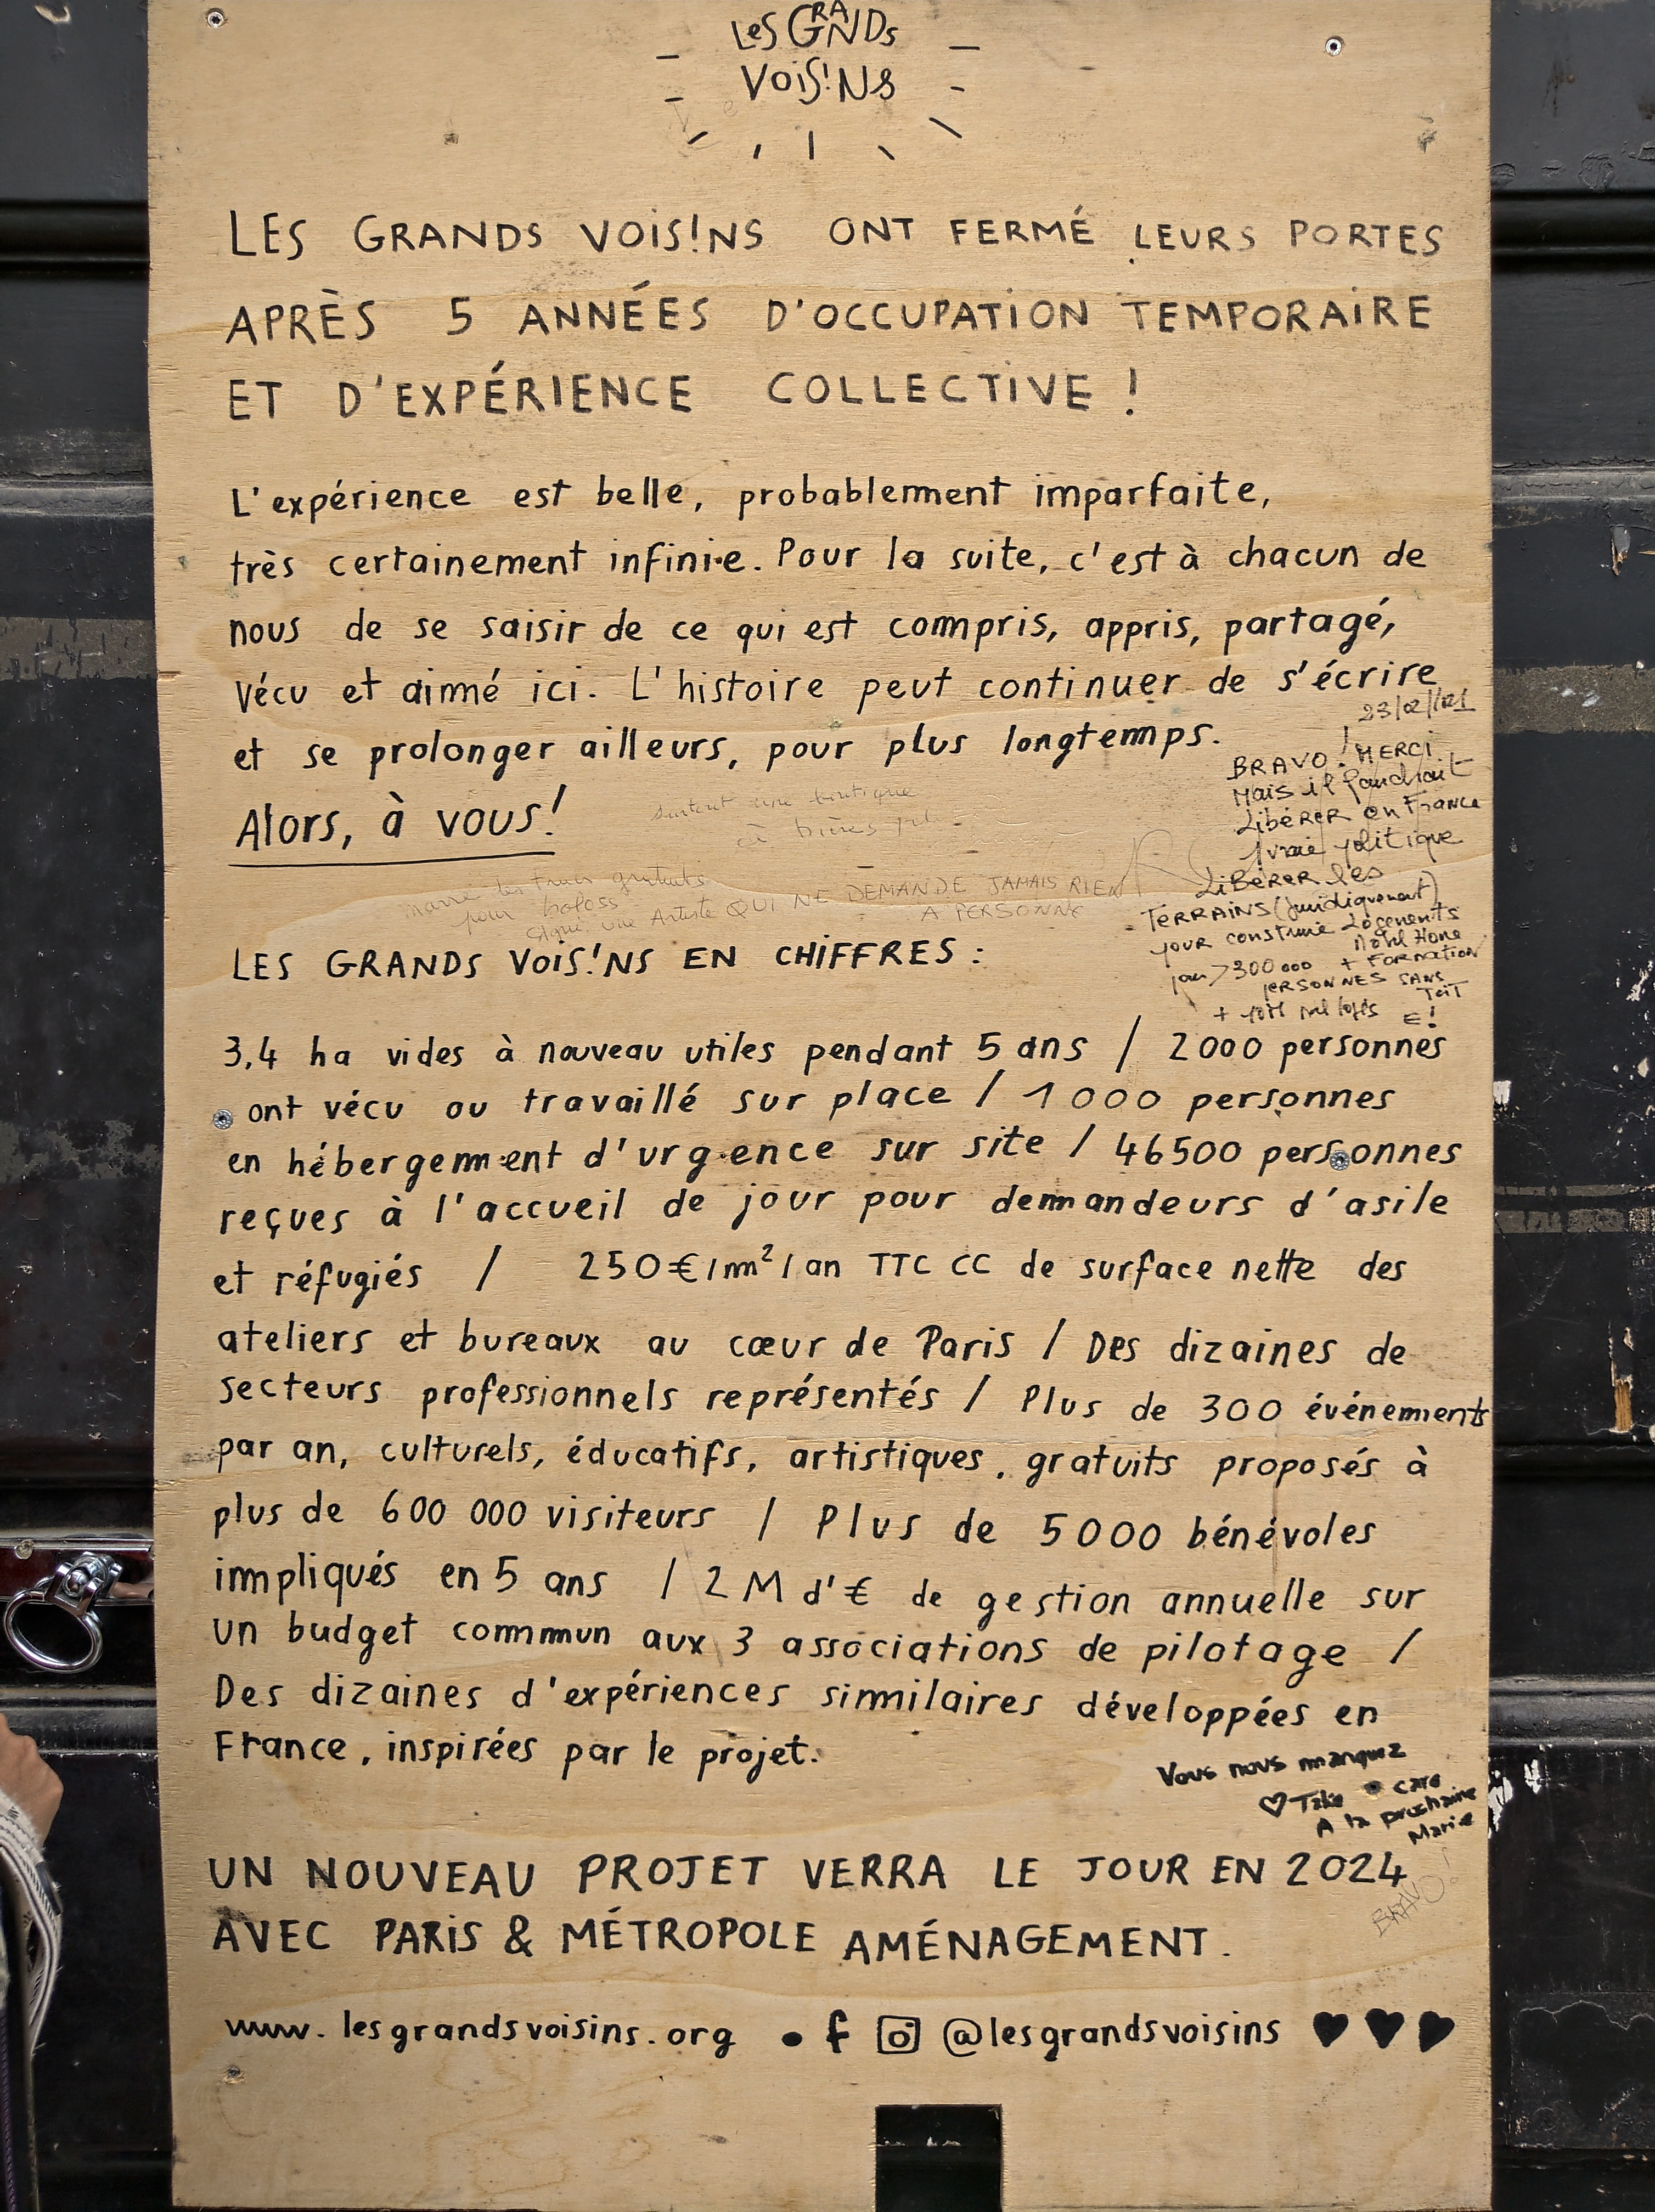 LES GRANDS
VOIS!NS
LES GRANDS VOIS!NS ONT FERMÉ LEURS PORTES
APRÈS 5 ANNÉES D'OCCUPATION TEMPORAIRE
ET D'EXPÉRIENCE COLLECTIVE !
L'expérience est belle, probablement imparfaite,
très certainement infinie. Pour la suite, c'est à chacun de
nous de se saisir de ce qui est compris, appris, partagé,
vécu et aimé ici. L'histoire peut continuer de s'écrire
et se prolonger ailleurs, pour plus longtemps.
Alors, à vous!
surtout une
à bières
marre des trucs gratuits
pour boloss
signé: une Artiste QUI NE DEMANDE JAMAIS RIEN
A PERSONNE
23/02/
BRAVO! MERCI
Mais il faudrait
LIBÉRER en France
1 vraie politique
LIBÉRER les
TERRAINS (juridiquement)
pour construire Logements
Mobil Home
pour > 300 000 + FORMATION
PERSONNES SANS
TOIT
+ 10M mal logés
LES GRANDS VOIS!NS EN CHIFFRES :
3,4 ha vides à nouveau utiles pendant 5 ans / 2000 personnes
ont vécu ou travaillé sur place / 1000 personnes
en hébergement d'urgence sur site / 46500 personnes
reçues à l'accueil de jour pour demandeurs d'asile
et réfugiés / 250€/m²/an TTC CC de surface nette des
ateliers et bureaux au cœur de Paris / Des dizaines de
secteurs professionnels représentés / Plus de 300 événements
par an, culturels, éducatifs, artistiques, gratuits proposés à
plus de 600 000 visiteurs / Plus de 5000 bénévoles
impliqués en 5 ans / 2 M d'€ de gestion annuelle sur
un budget commun aux 3 associations de pilotage /
Des dizaines d'expériences similaires développées en
France, inspirées par le projet.
Vous nous manquez
♡ Take care
A la prochaine
Marie
UN NOUVEAU PROJET VERRA LE JOUR EN 2024
AVEC PARIS & MÉTROPOLE AMÉNAGEMENT.
BRAVO!
www.lesgrandsvoisins.org • f @lesgrandsvoisins ♥♥♥